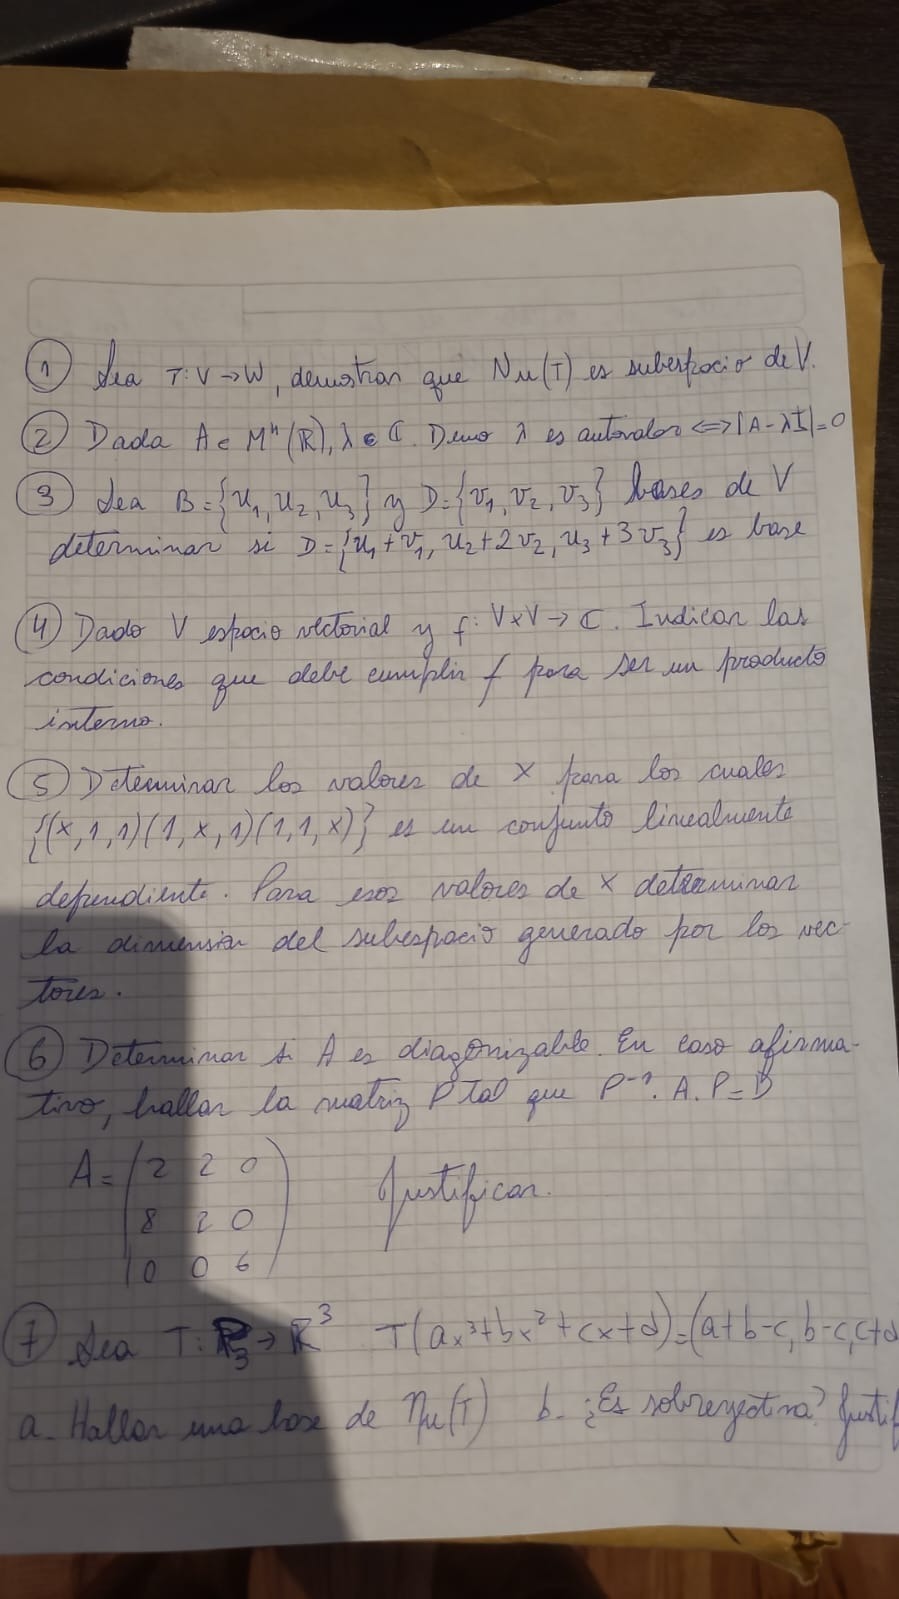 ① Sea T:V→W, demostrar que Nu(T) es subespacio de V.
② Dada A∈M^n(ℝ), λ∈ℂ. Demo λ es autovalor ⇔|A-λI|=0
③ Sea B={u₁,u₂,u₃} y D={v₁,v₂,v₃} bases de V
determinar si D={u₁+v₁, u₂+2v₂, u₃+3v₃} es base
④ Dado V espacio vectorial y f: V×V→ℂ. Indicar las
condiciones que debe cumplir f para ser un producto
interno.
⑤ Determinar los valores de x para los cuales
{(x,1,1)(1,x,1)(1,1,x)} es un conjunto linealmente
dependiente. Para esos valores de x determinar
la dimensión del subespacio generado por los vec-
tores.
⑥ Determinar si A es diagonizable. En caso afirma-
tivo, hallar la matriz P tal que P⁻¹.A.P=D
A=(2 2 0
8 2 0 Justificar.
0 0 6)
⑦ Sea T: P₃→ℝ³ T(ax³+bx²+cx+d)=(a+b-c,b-c,c+d
a- Hallar una base de Nu(T) b- ¿Es sobreyectiva? Justif